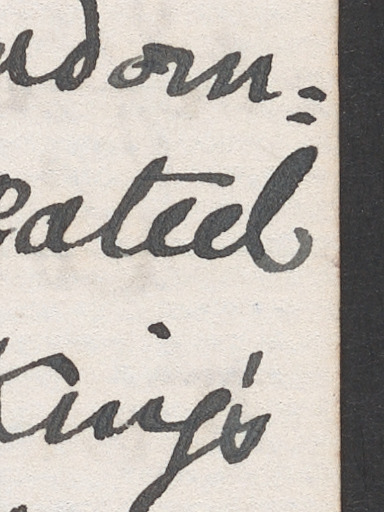 dom=
eated
King's